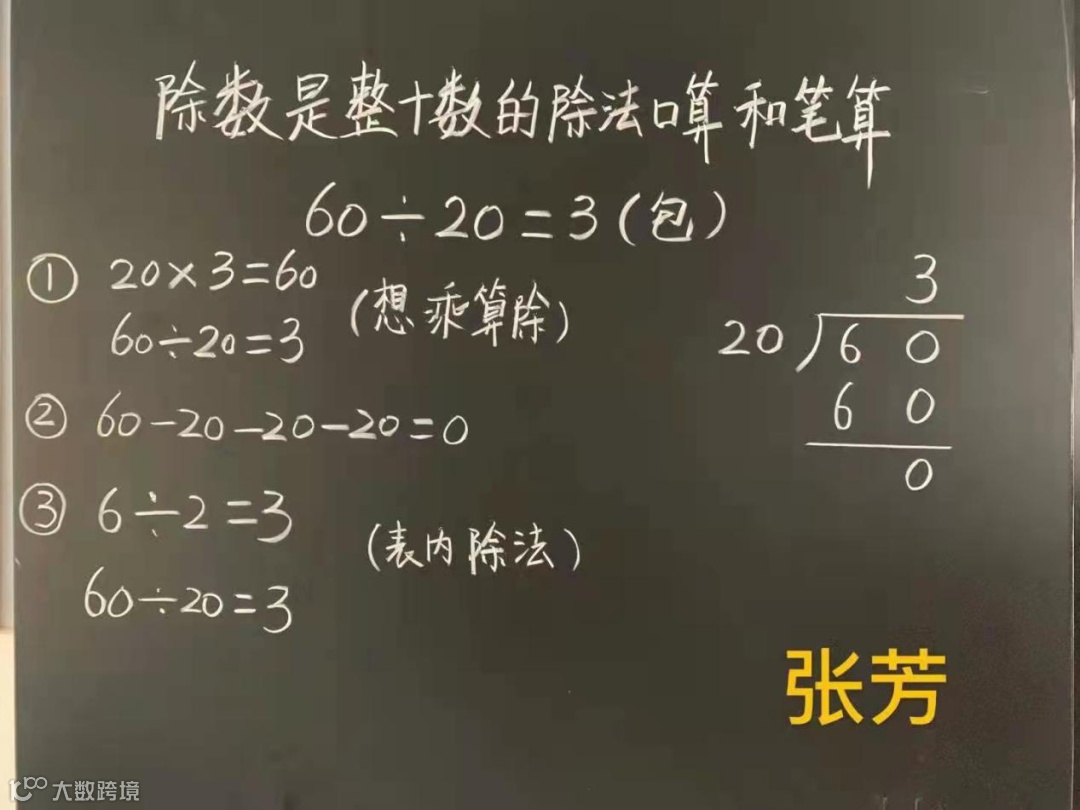 除数是整十数的除法口算和笔算
60÷20=3(包)
① 20×3=60
60÷20=3
(想乘算除)
② 60-20-20-20=0
③ 6÷2=3
60÷20=3
(表内除法)
3
20 60
60
0
张芳
大数跨境